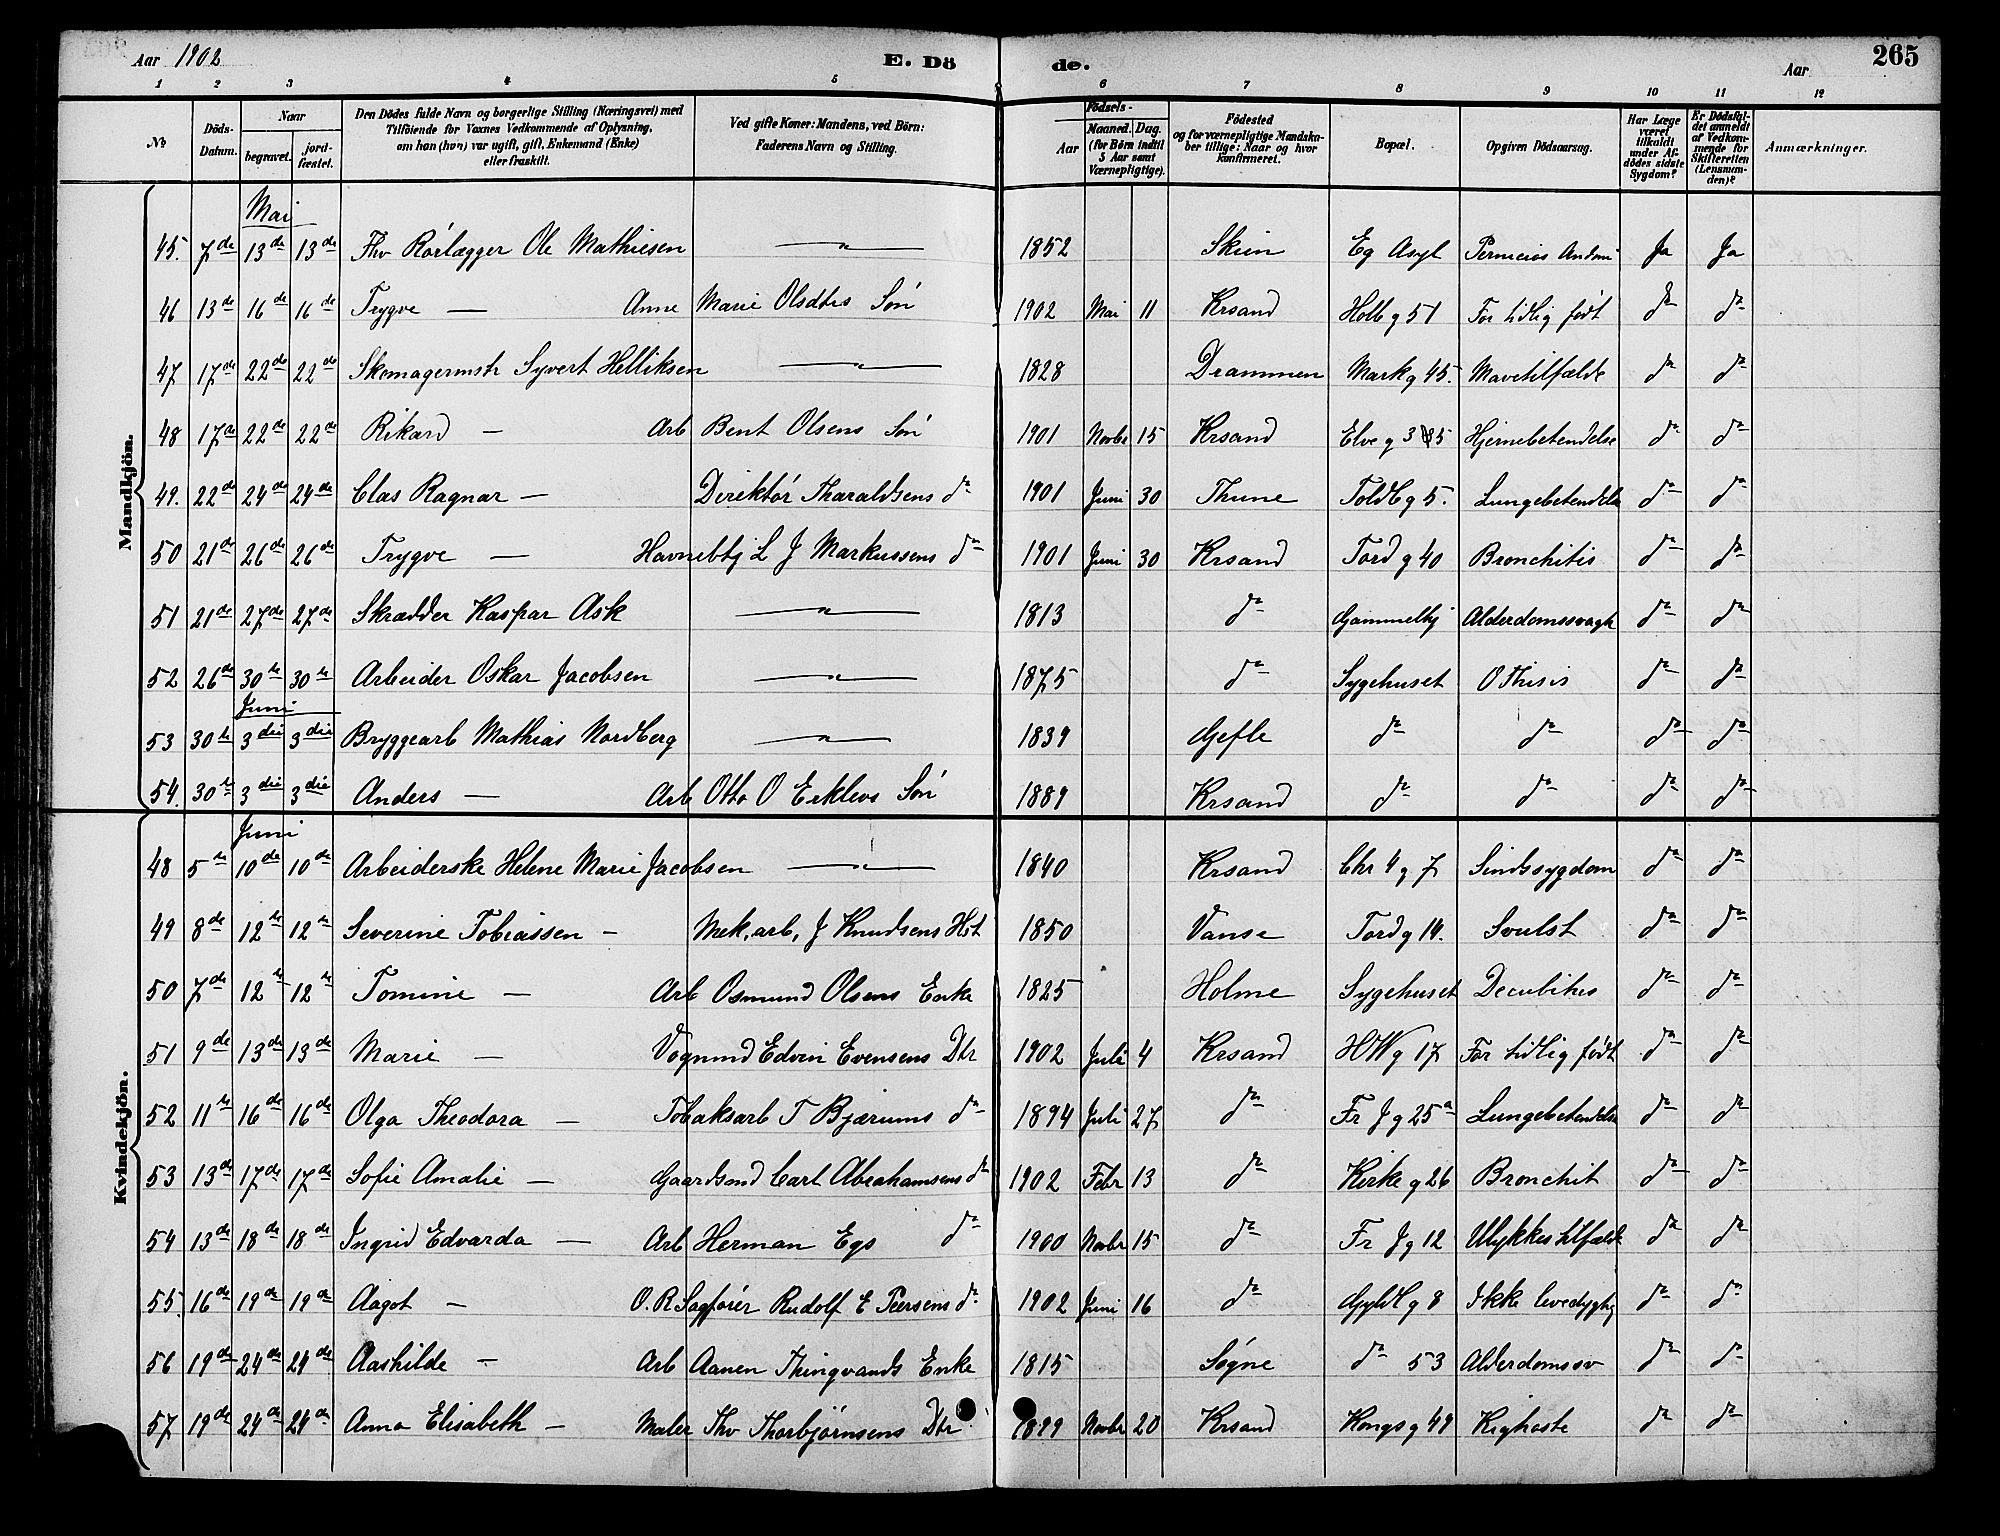 Aar 1902 E. Dö de. Aar 265
1 2 3 4 5 6 7 8 9 10 11 12
No Döds-Datum. Naar begravet. jord-fæstet. Den Dödes fulde Navn og borgerlige Stilling (Næringsvei) med Tilföiende for Voxnes Vedkommende af Oplysning, om han (hun) var ugift, gift, Enkemand (Enke) eller fraskilt. Ved gifte Koner: Mandens, ved Börn: Faderens Navn og Stilling. Födsels- Aar Maaned. Dag. (for Börn indtil 5 Aar samt Værnepligtige). Födested og for værnepligtige Mandska-ber tillige: Naar og hvor konfirmeret. Bopæl. Opgiven Dödsaarsag. Har Læge været tilkaldt under Af-dödes sidste Sygdom? Er Dödsfal-det anmeldt af Vedkom-mende for Skifteretten (Lensman-den)? Anmærkninger.
Mandkjön.
Mai
45. 7de 13de 13de Fhv Rörlægger Ole Mathiesen — " — 1852 Skien Eg Asyl Perniciøs Ja Ja
46 13de 16de 16de Trygve — Anne Marie Olsdtrs Sön 1902 Mai 11 Krsand Holbg 51 For tidlig født do do
47 17de 22de 22de Skomagermstr Syvert Helliksen — " — 1828 Drammen Markg 45. Mavetilfælde do do
48 17de 22de 22de Rikard — Arb Bent Olsens Sön 1901 Novbr 15 Krsand Elveg Hjernebetendelse do do
49. 22de 24de 24de Clas Ragnar — Direktör Tharaldsens do 1901 Juni 30 Thune Toldbg 5. Lungebetendelse do do
50 21de 26de 26de Trygve — Havnebtj L J Markussens do 1901 Juni 30 Krsand Tordg 40 Bronchitis do do
51 21de 27de 27de Skrædder Kaspar Ask — " — 1813 do Gammelhj Alderdomssvagh do do
52 26de 30te 30te Arbeider Oskar Jacobsen — " — 1875 do Sygehuset do do
Juni
53 30te 3die 3die Bryggearb Mathias Nordberg — " — 1839 Gefle do do do do
54. 30te 3die 3die Anders — Arb Otto O Erklevs Sön 1889 Krsand do do do do
Kvindekjön.
Juni
48 5te 10de 10de Arbeiderske Helene Marie Jacobsen — " — 1840 Krsand Chr 4 g 7 Sindssygdom do do
49 8de 12te 12te Severine Tobiassen — Mek. arb, J Knudsens Hst 1850 Vanse Tordg 14. Svulst do do
50 7de 12te 12te Tomine — Arb Osmund Olsens Enke 1825 Holme Sygehuset Decubitus do do
51 9de 13de 13de Marie — Vognmd Edvin Evensens Dtr 1902 Juli 4 Krsand HWg 17 For tidlig født do do
52 11te 16de 16de Olga Theodora — Tobaksarb T Bjærums do 1894 Juli 27 do Fr Jg 25a Lungebetendelse do do
53 13de 17de 17de Sofie Amalie — Gaardsmd Carl Abrahamsens do 1902 Febr 13 do Kirkeg 26 Bronchit do do
54 13de 18de 18de Ingrid Edvarda — Arb Herman Egs do 1900 Novbr 15 do Fr Jg 12 Ulykkestilfælde do do
55. 16de 19de 19de Aagot — O. R Sagförer Rudolf E Peersens do 1902 Juni 16 do Gyldlg 8 Ikke levedygtig do do
56 19de 24de 24de Aashilde — Arb Aanen Thingvands Enke 1815 Søgne do 53 Alderdomssv do do
57 19de 24de 24de Anna Elisabeth — Maler Thv Thorbjørnsens Dtr 1899 Novbr 20 Krsand Kongsg 49 Kighoste do do